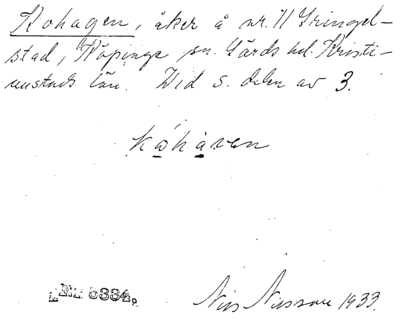 Kohagen, åker å nr. 11 Gringel-
stad, Köpinge sn. Gärds hd. Kristi-
anstads län. Vid s. delen av 3.
kåhaven
6334.
Nils Nilsson 1933.